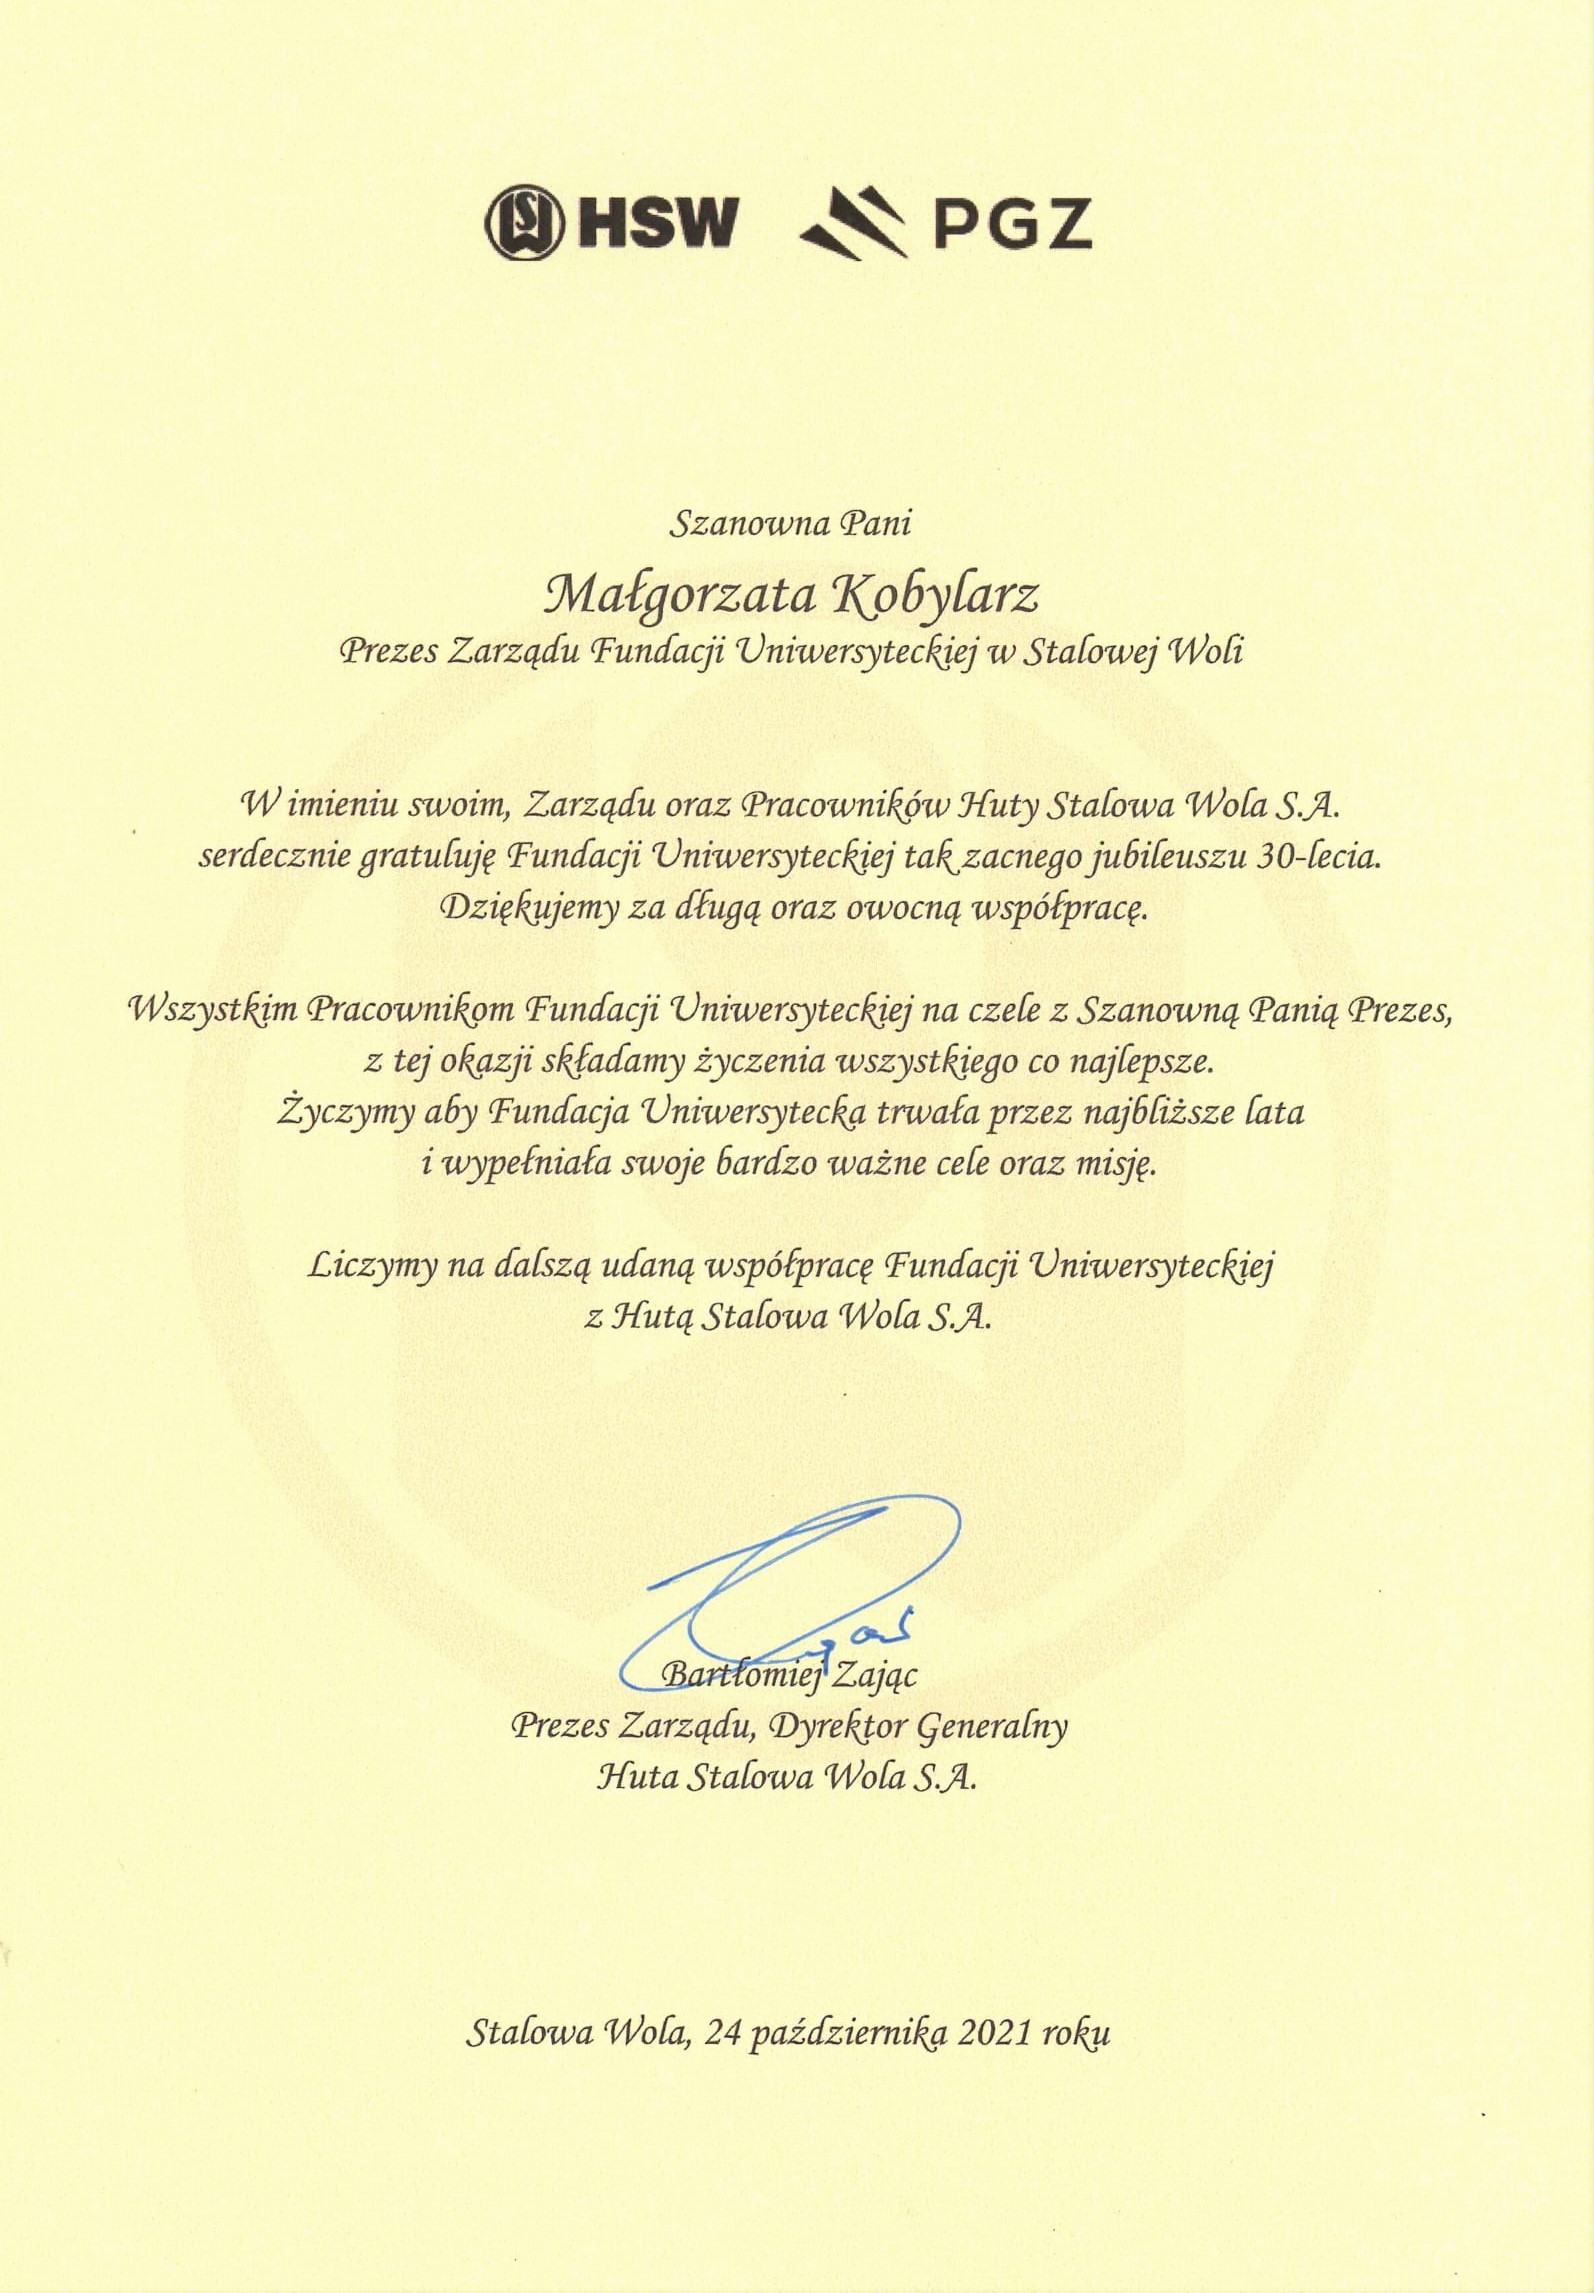 HSW PGZ
Szanowna Pani
Małgorzata Kobylarz
Prezes Zarządu Fundacji Uniwersyteckiej w Stalowej Woli
W imieniu swoim, Zarządu oraz Pracowników Huty Stalowa Wola S.A.
serdecznie gratuluję Fundacji Uniwersyteckiej tak zacnego jubileuszu 30-lecia.
Dziękujemy za długą oraz owocną współpracę.
Wszystkim Pracownikom Fundacji Uniwersyteckiej na czele z Szanowną Panią Prezes,
z tej okazji składamy życzenia wszystkiego co najlepsze.
Życzymy aby Fundacja Uniwersytecka trwała przez najbliższe lata
i wypełniała swoje bardzo ważne cele oraz misję.
Liczymy na dalszą udaną współpracę Fundacji Uniwersyteckiej
z Hutą Stalowa Wola S.A.
Bartłomiej Zając
Prezes Zarządu, Dyrektor Generalny
Huta Stalowa Wola S.A.
Stalowa Wola, 24 października 2021 roku